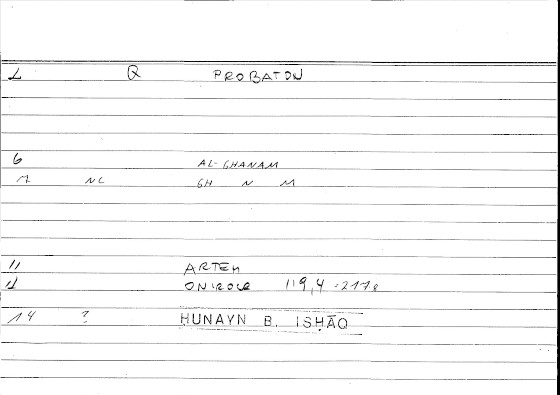 1 Q PROBATON
6 AL-GHANAM
7 NC GH N M
11 ARTEM
12 ONIROCR 119,4 = 217
14 ? ḤUNAYN B. ISḤĀQ